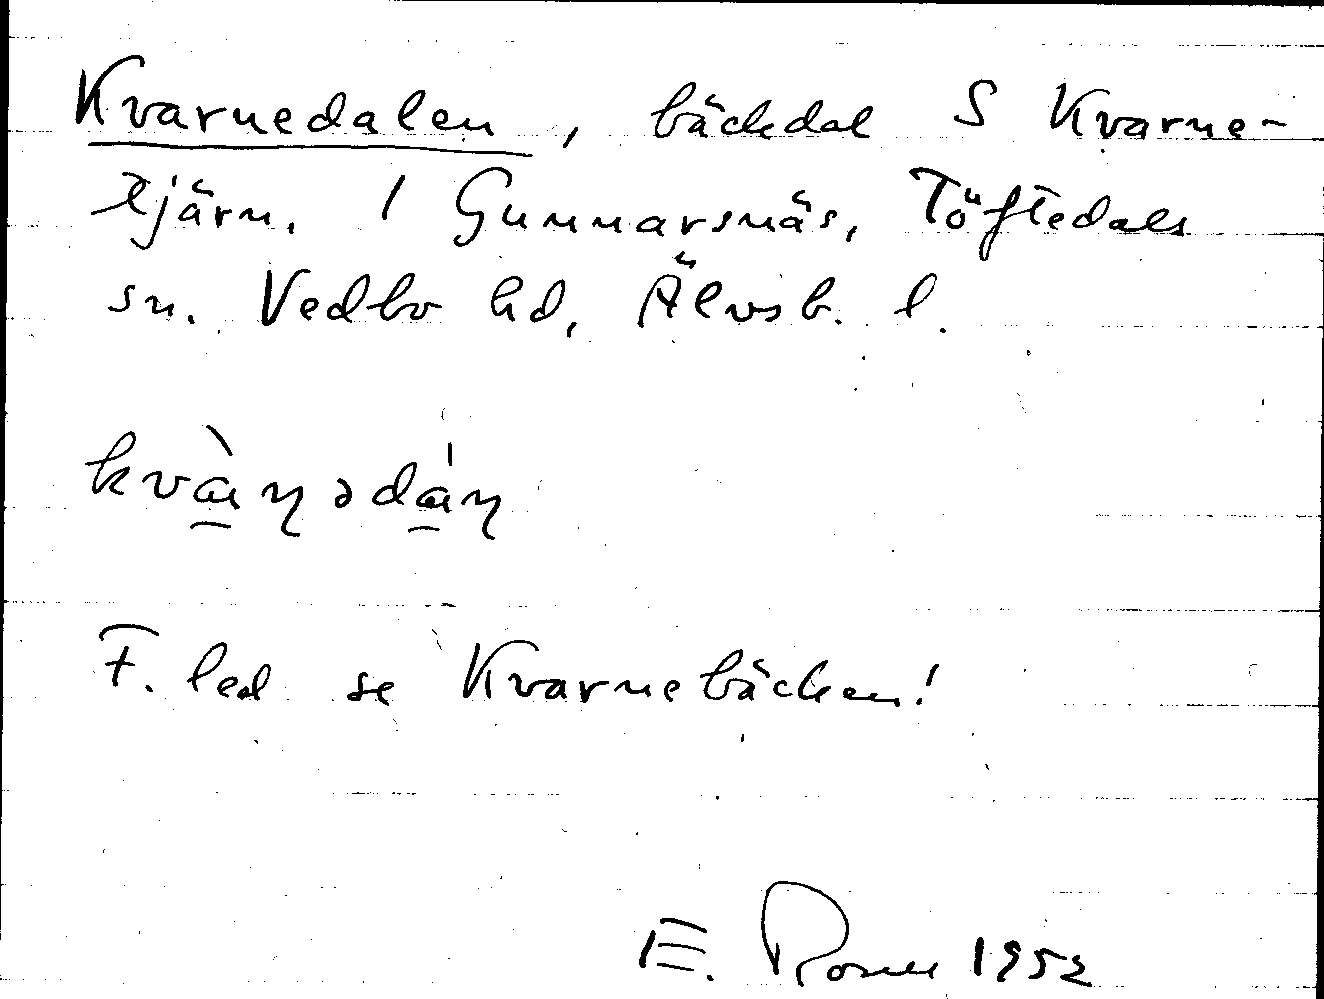 Kvarnedalen, bäckdal S Kvarne-
tjärn, 1 Gunnarsnäs, Töftedals
sn. Vedbo hd, Älvsb. l.
kvàɳədáɳ
F. led se Kvarnebäcken!
E. Rosell 1952